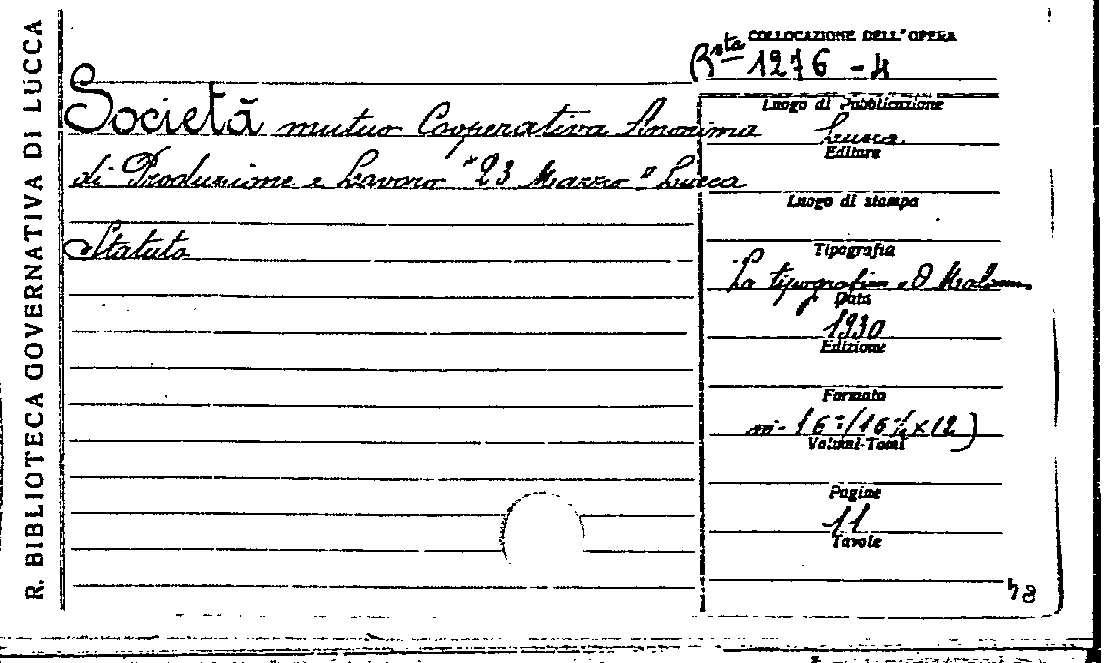 R. BIBLIOTECA GOVERNATIVA DI LUCCA
COLLOCAZIONE DELL'OPERA
Bsta 1276 - 4
Società mutuo Cooperativa Anonima
di Produzione e Lavoro "23 Marzo" Lucca
Statuto
Luogo di Pubblicazione
Lucca
Editore
Luogo di stampa
Tipografia
La tipografica
Data
1930
Edizione
Formato
in-16°
Volumi-Tomi
Pagine
11
Tavole